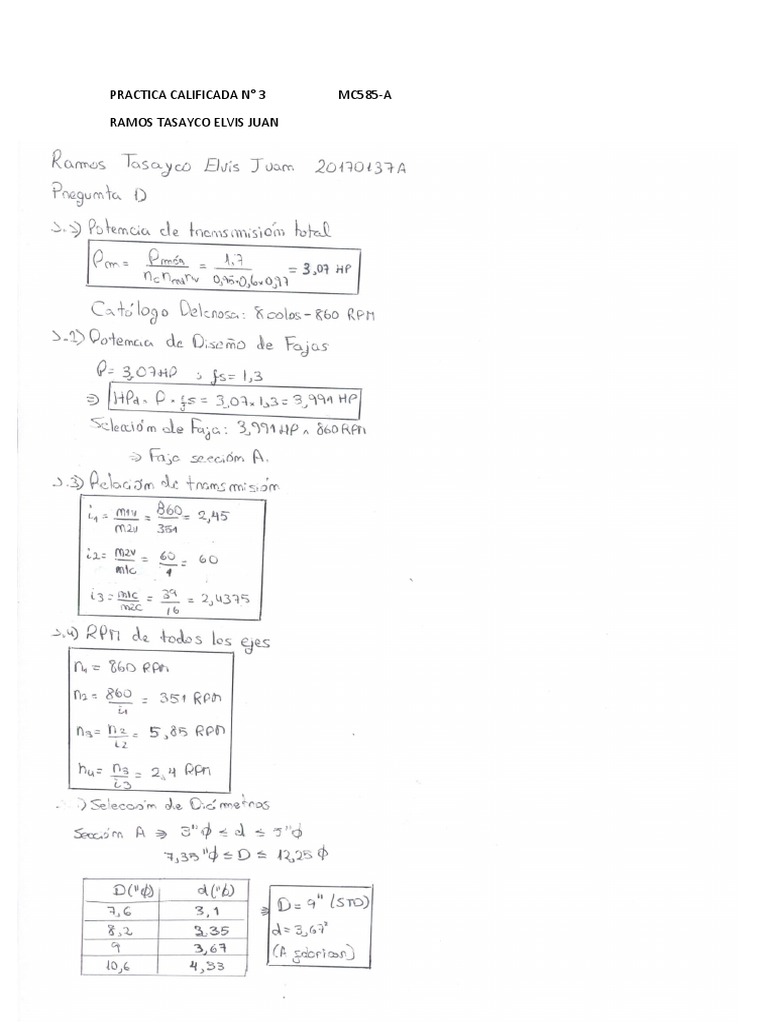 PRACTICA CALIFICADA N° 3 MC585-A
RAMOS TASAYCO ELVIS JUAN
Ramos Tasayco Elvis Juan 20170137A
Pregunta 1)
Potencia de transmisión total
Pm = Pmáq / ncnmnv = 1,7 / 0,95×0,6×0,97 = 3,07 HP
Catálogo Delcrosa: 8 polos - 860 RPM
Potencia de Diseño de Fajas
P = 3,07 HP ; fs = 1,3
⇒ HPd = P × fs = 3,07 × 1,3 = 3,991 HP
Selección de Faja: 3,991 HP ∧ 860 RPM
⇒ Faja sección A.
1.3) Relación de transmisión
i1 = = 860/351 = 2,45
i2 = = 60/1 = 60
i3 = = 39/16 = 2,4375
1.4) RPM de todos los ejes
n1 = 860 RPM
n2 = 860/i1 = 351 RPM
n3 = n2/i2 = 5,85 RPM
n4 = n3/i3 = 2,4 RPM
Selección de Diámetros
Sección A ⇒ 3"φ ≤ d ≤ 5"φ
7,35"φ ≤ D ≤ 12,25 φ
D("φ) d("φ)
7,6 3,1
8,2 3,35
9 3,67
10,6 4,33
⇒ D = 9" (STD)
d = 3,67"
(A fabricar)